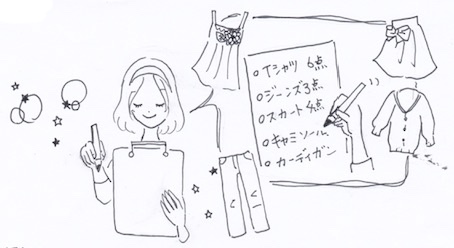 ○Tシャツ 6点
○ジーンズ3点
○スカート4点
○キャミソール
○カーディガン